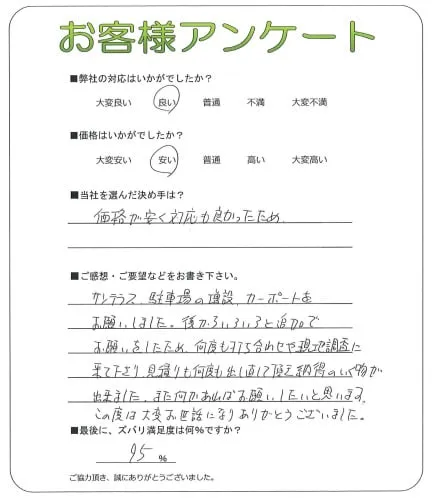 お客様アンケート
■弊社の対応はいかがでしたか？
大変良い 良い 普通 不満 大変不満
■価格はいかがでしたか？
大変安い 安い 普通 高い 大変高い
■当社を選んだ決め手は？
価格が安く対応も良かったため、
■ご感想・ご要望などをお書き下さい。
サンテラス、駐車場の増設、カーポートを
お願いしました。後からいろいろと追加で
お願いをしたため、何度も打ち合わせや現地調査に
来て下さり、見積りも何度も出し直して頂き納得のいく物が
出来ました。また何かあればお願いしたいと思います。
この度は大変お世話になりありがとうございました。
■最後に、ズバリ満足度は何%ですか？
95 %
ご協力頂き、誠にありがとうございました。